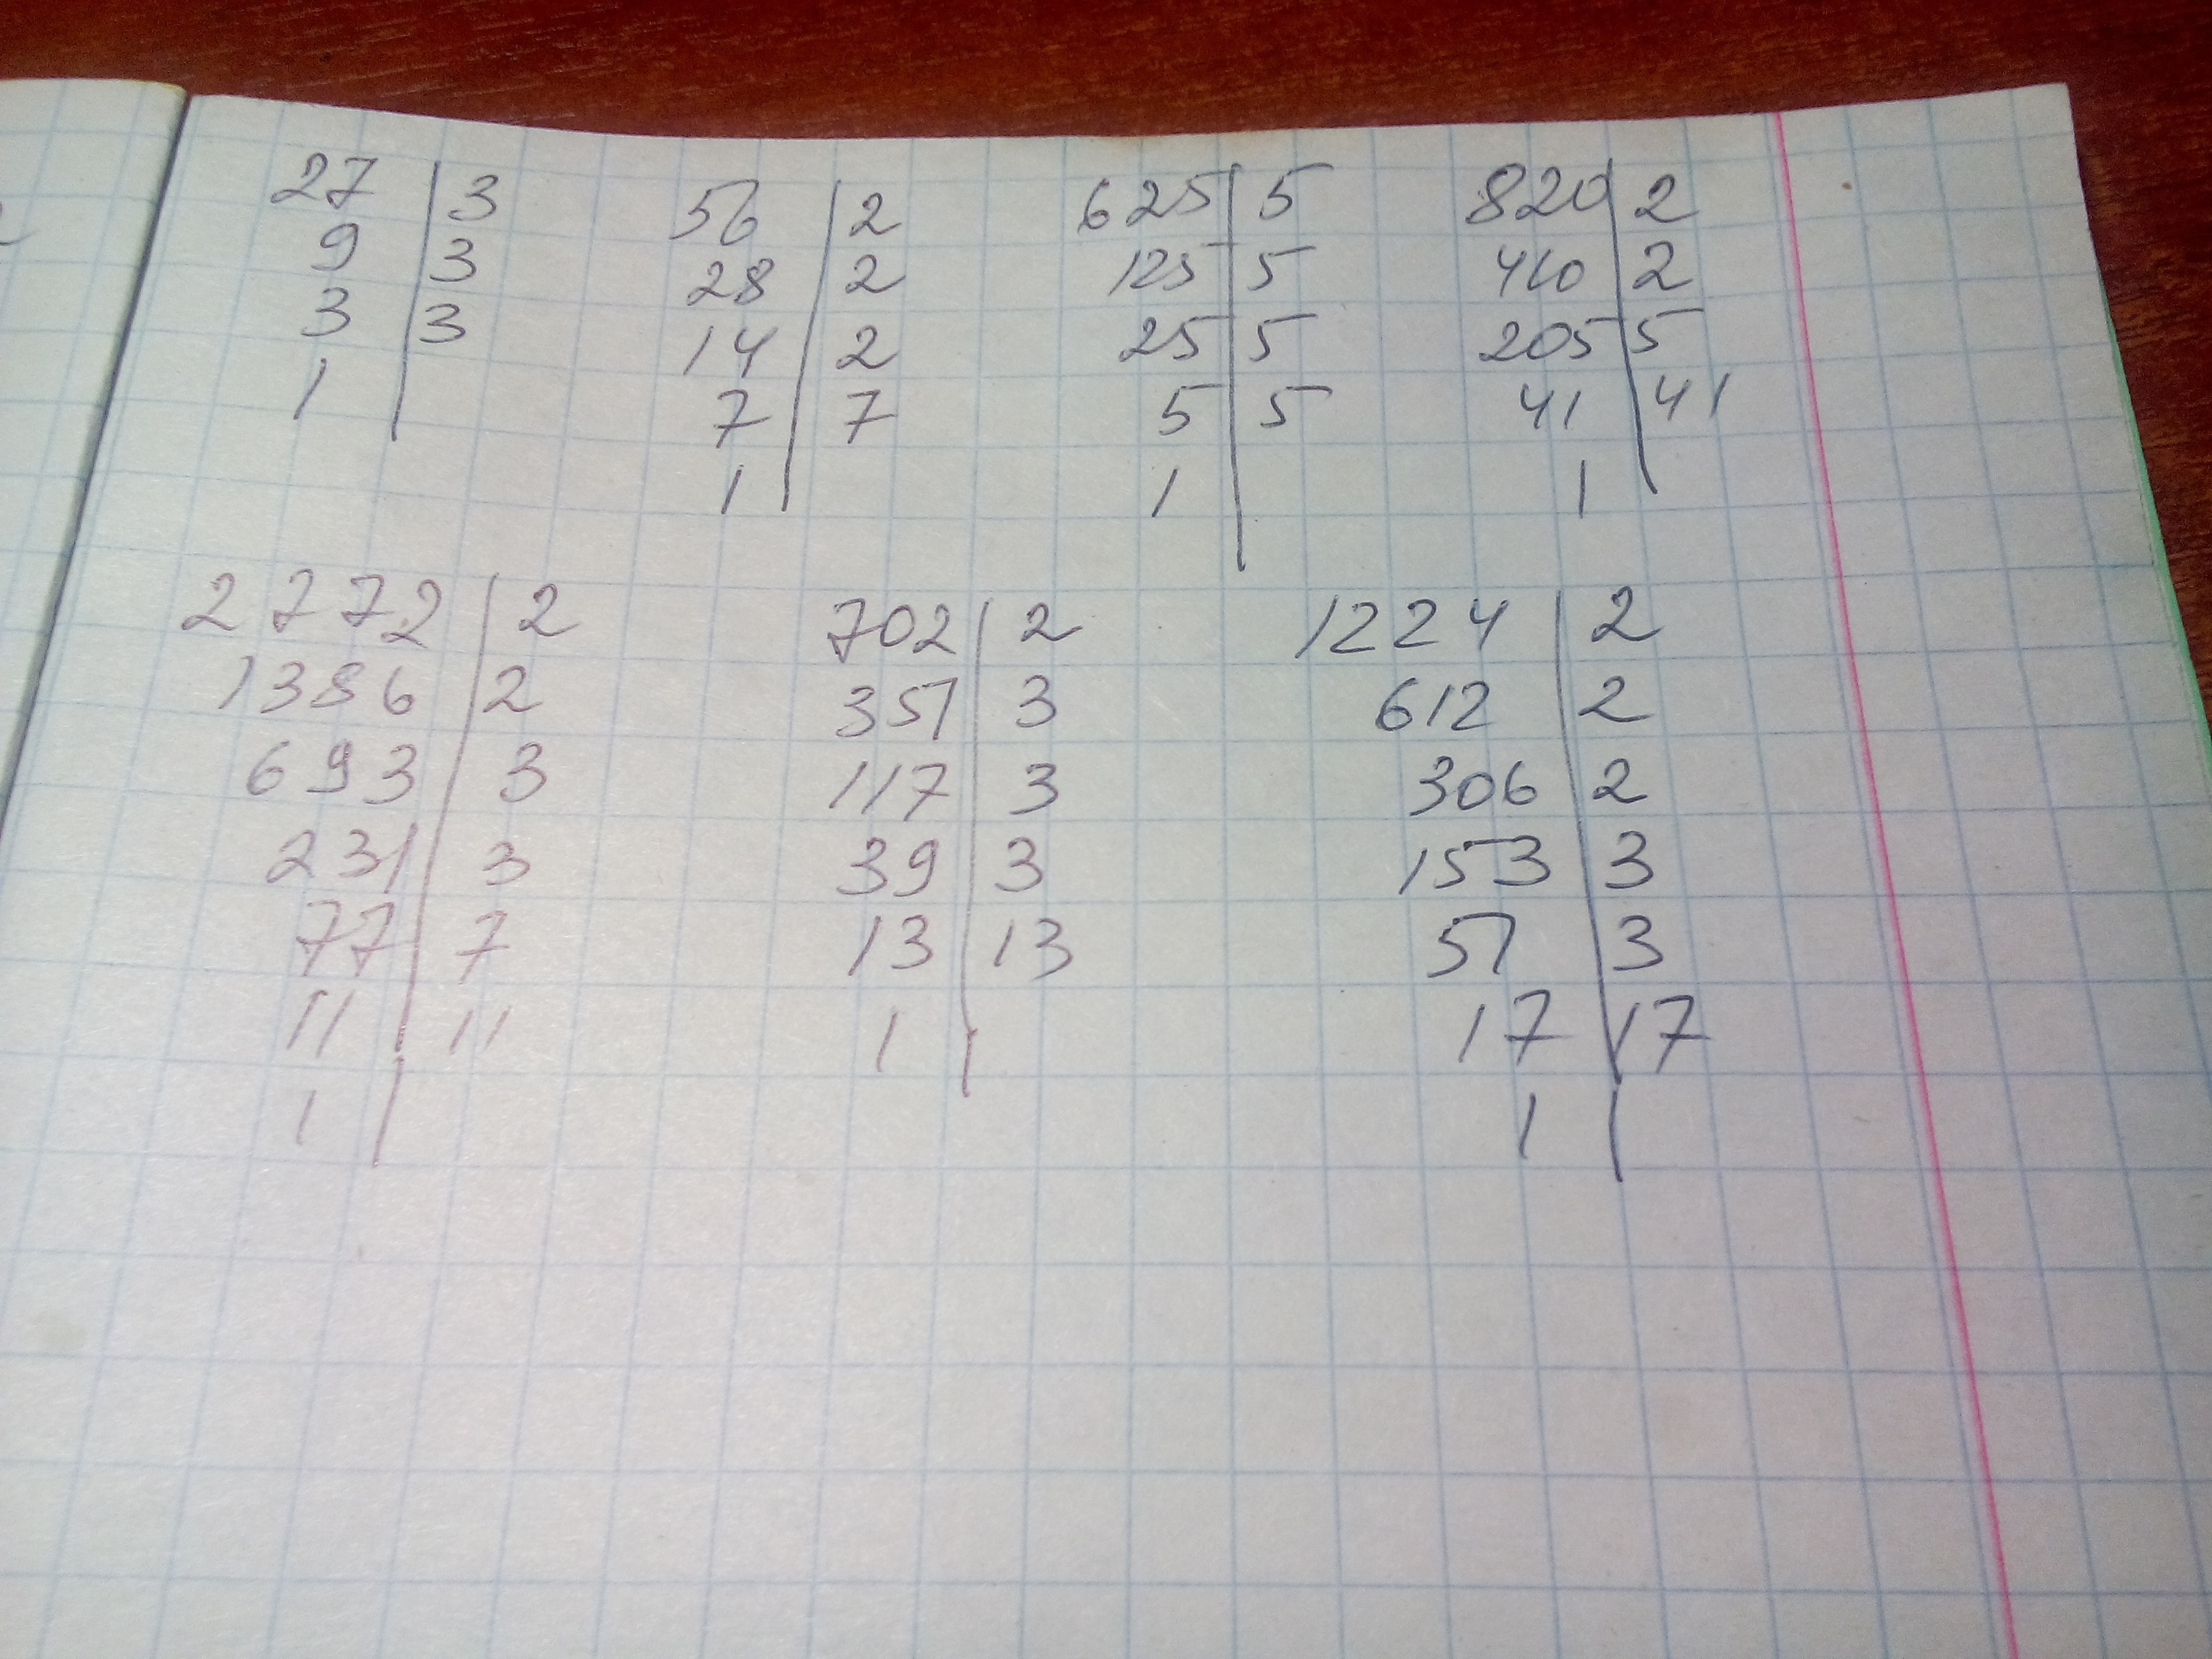 27 | 3
9 | 3
3 | 3
1 |
56 | 2
28 | 2
14 | 2
7 | 7
1 |
625 | 5
125 | 5
25 | 5
5 | 5
1 |
820 | 2
410 | 2
205 | 5
41 | 41
1 |
2772 | 2
1386 | 2
693 | 3
231 | 3
77 | 7
11 | 11
1 |
702 | 2
351 | 3
117 | 3
39 | 3
13 | 13
1 |
1224 | 2
612 | 2
306 | 2
153 | 3
51 | 3
17 | 17
1 |